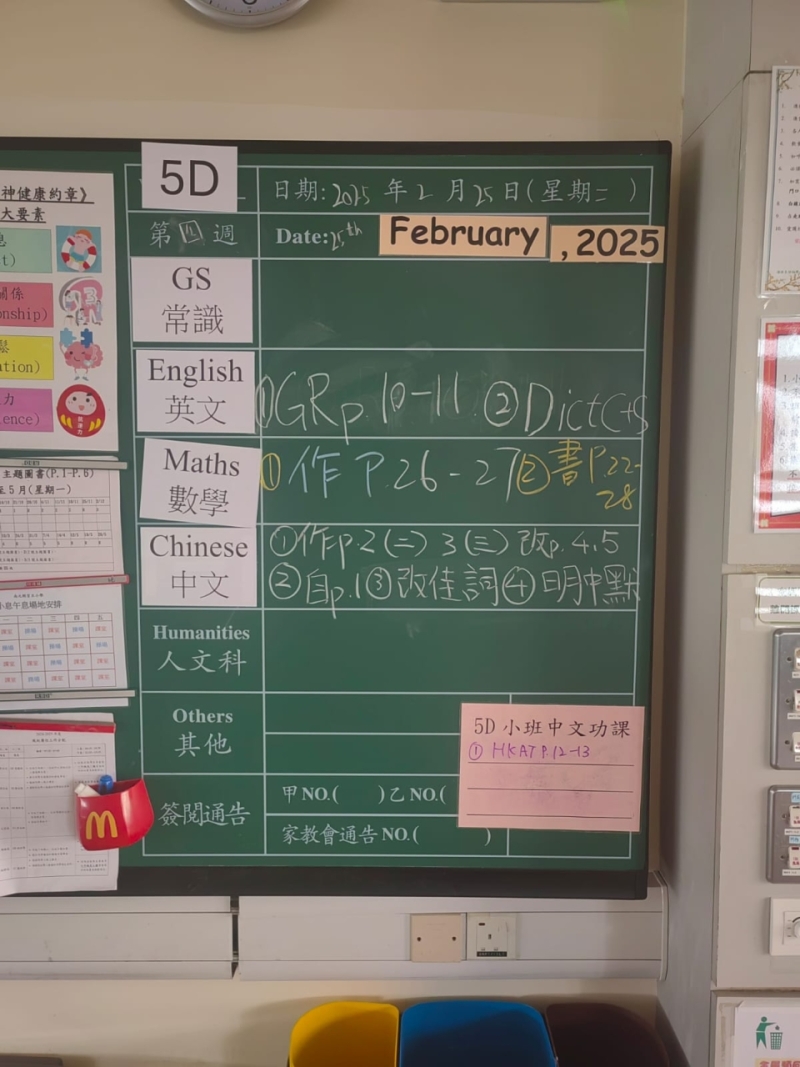 5D
日期: 2025 年 2 月 25 日 (星期二 )
第 四 週
Date: 25th February , 2025
GS
常識
English
英文
①GR p.10-11 ②Dict C+S
Maths
數學
①作 P.26-27 ②書P.22-
28
Chinese
中文
①作p.2(二) 3(三) 改p.4,5
②自p.1 ③改佳詞 ④明中默
Humanities
人文科
Others
其他
5D 小班中文功課
① HKAT P.12-13
簽閱通告
甲 NO.( ) 乙 NO.(
家教會通告 NO.( )
神健康約章》
大要素
關係
onship)
ation)
力
ience)
主題圖書(P.1-P.6)
至 5 月(星期一)
小息午息場地安排
一 二 三 四 五